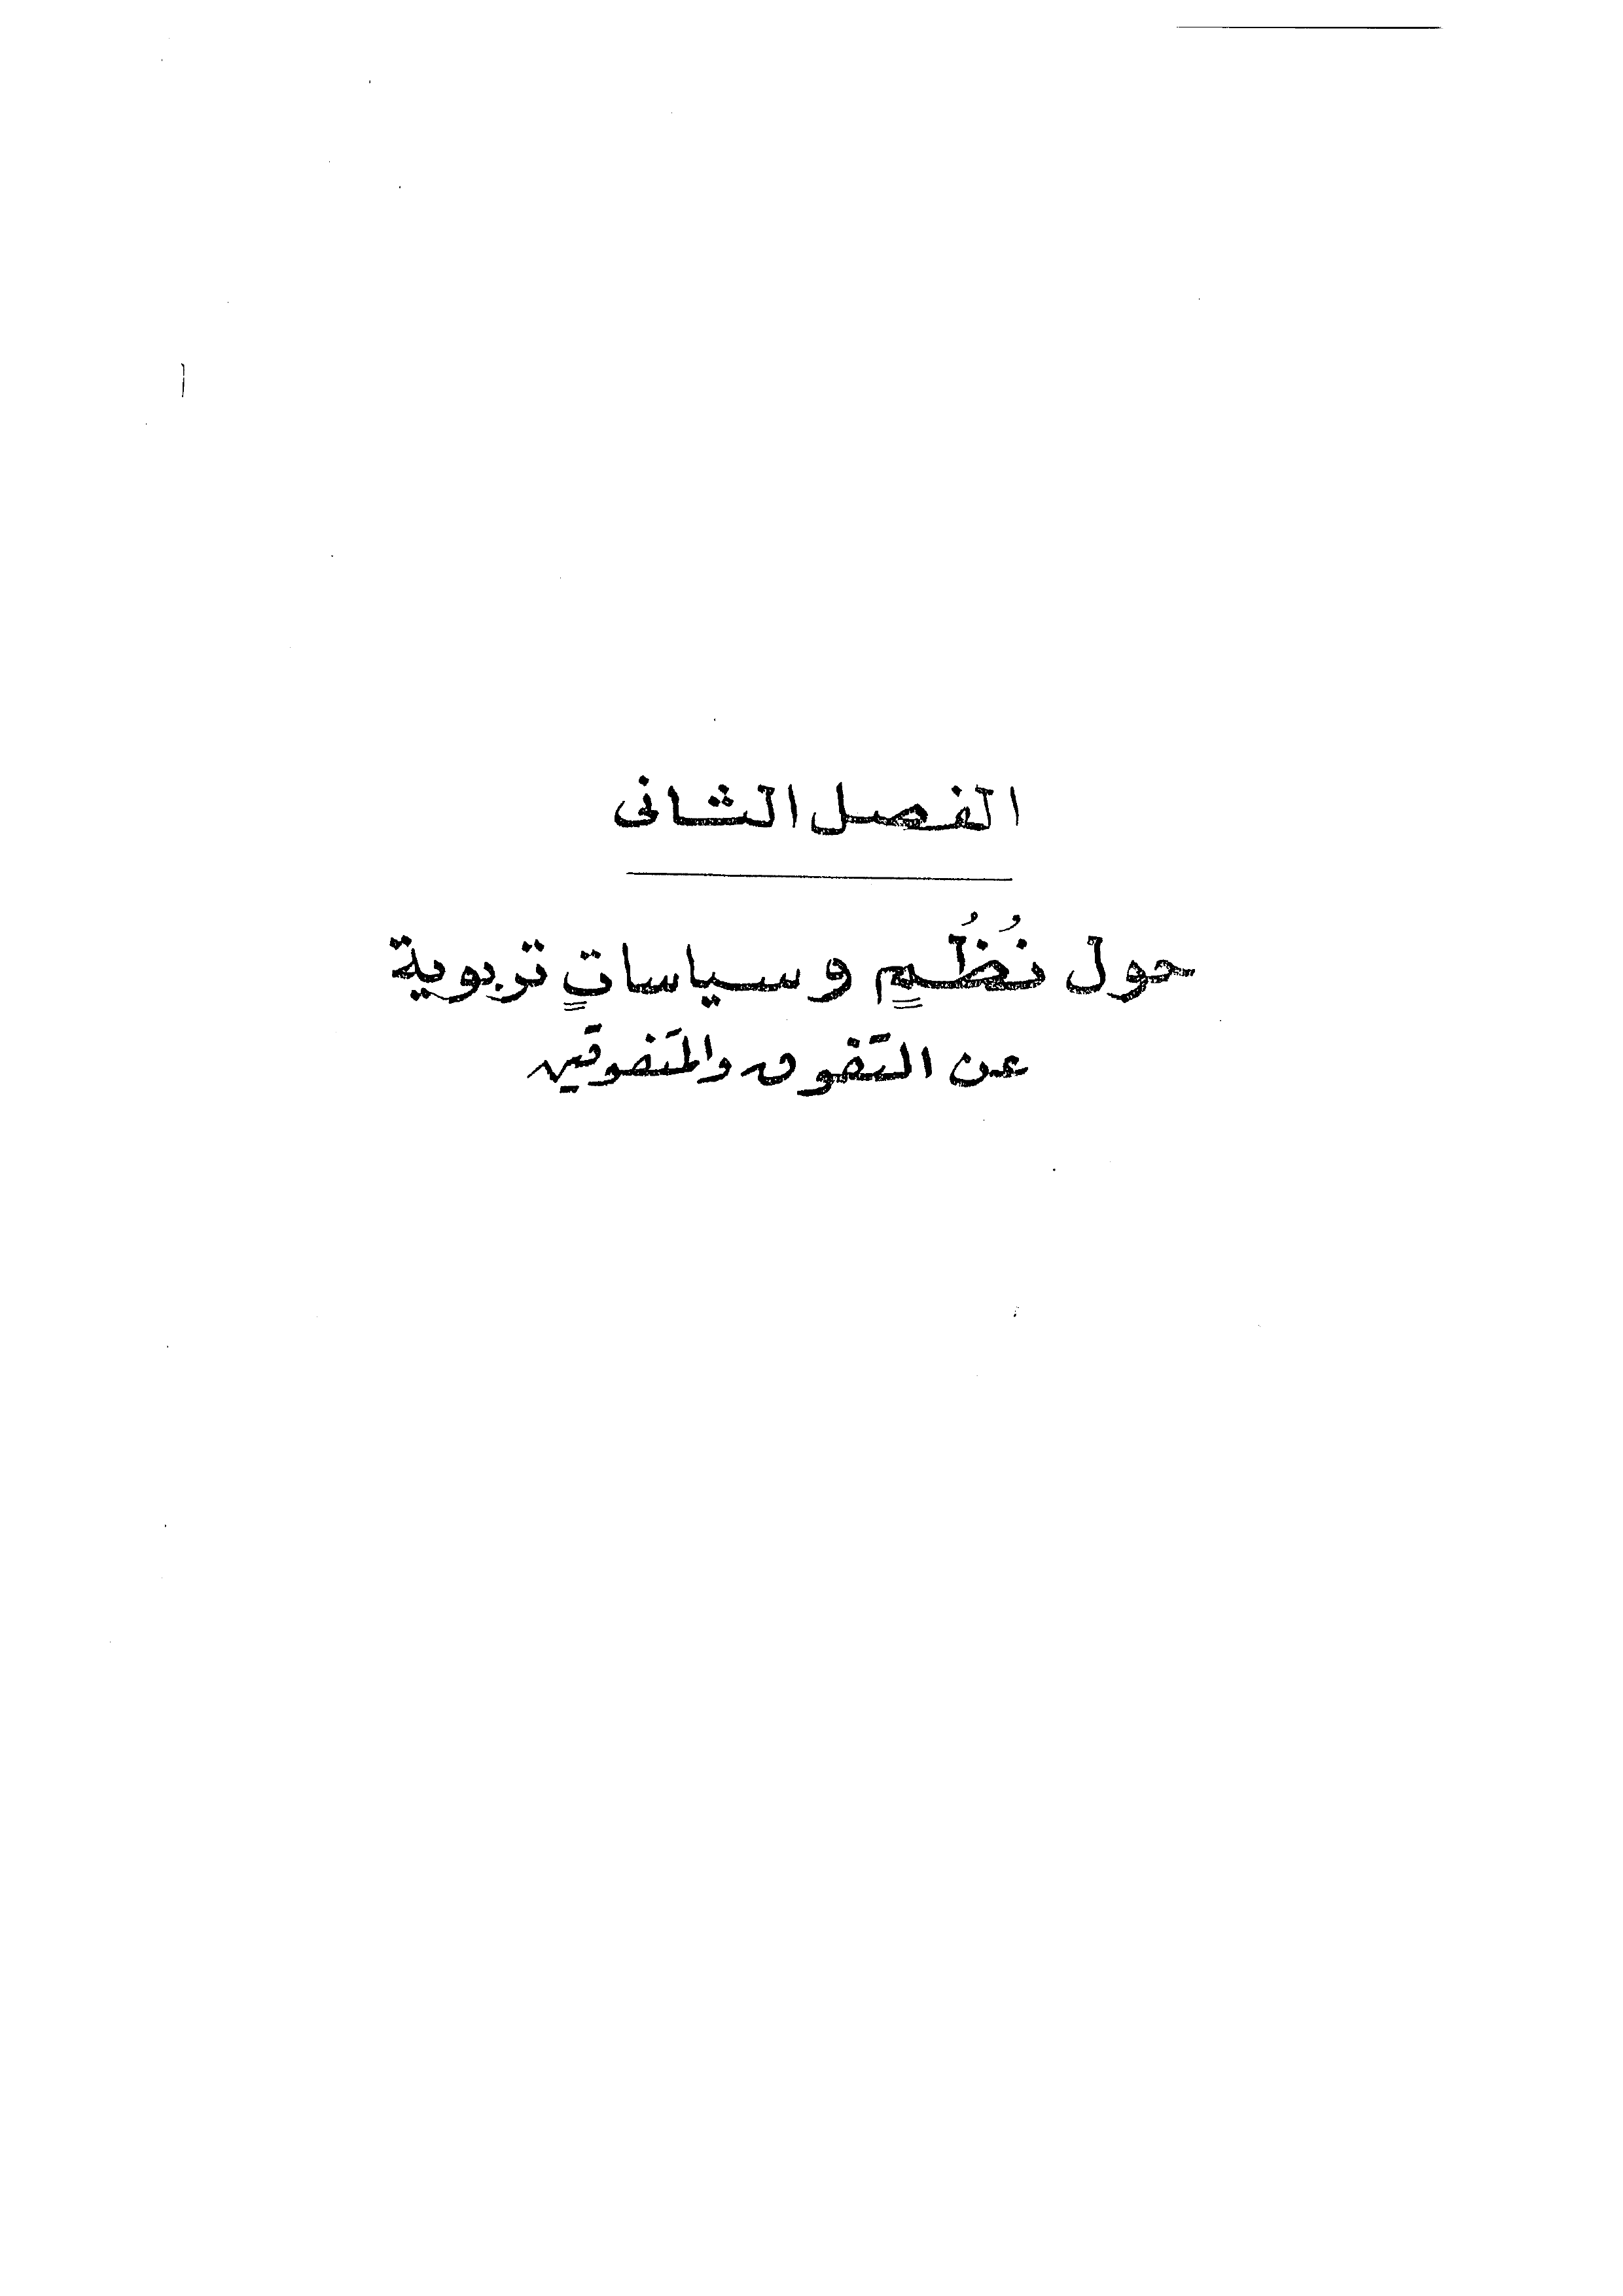 الفصل الثانى
حول نُظُمٍ وسياساتٍ تربوية
عن التفوق والمتفوقين